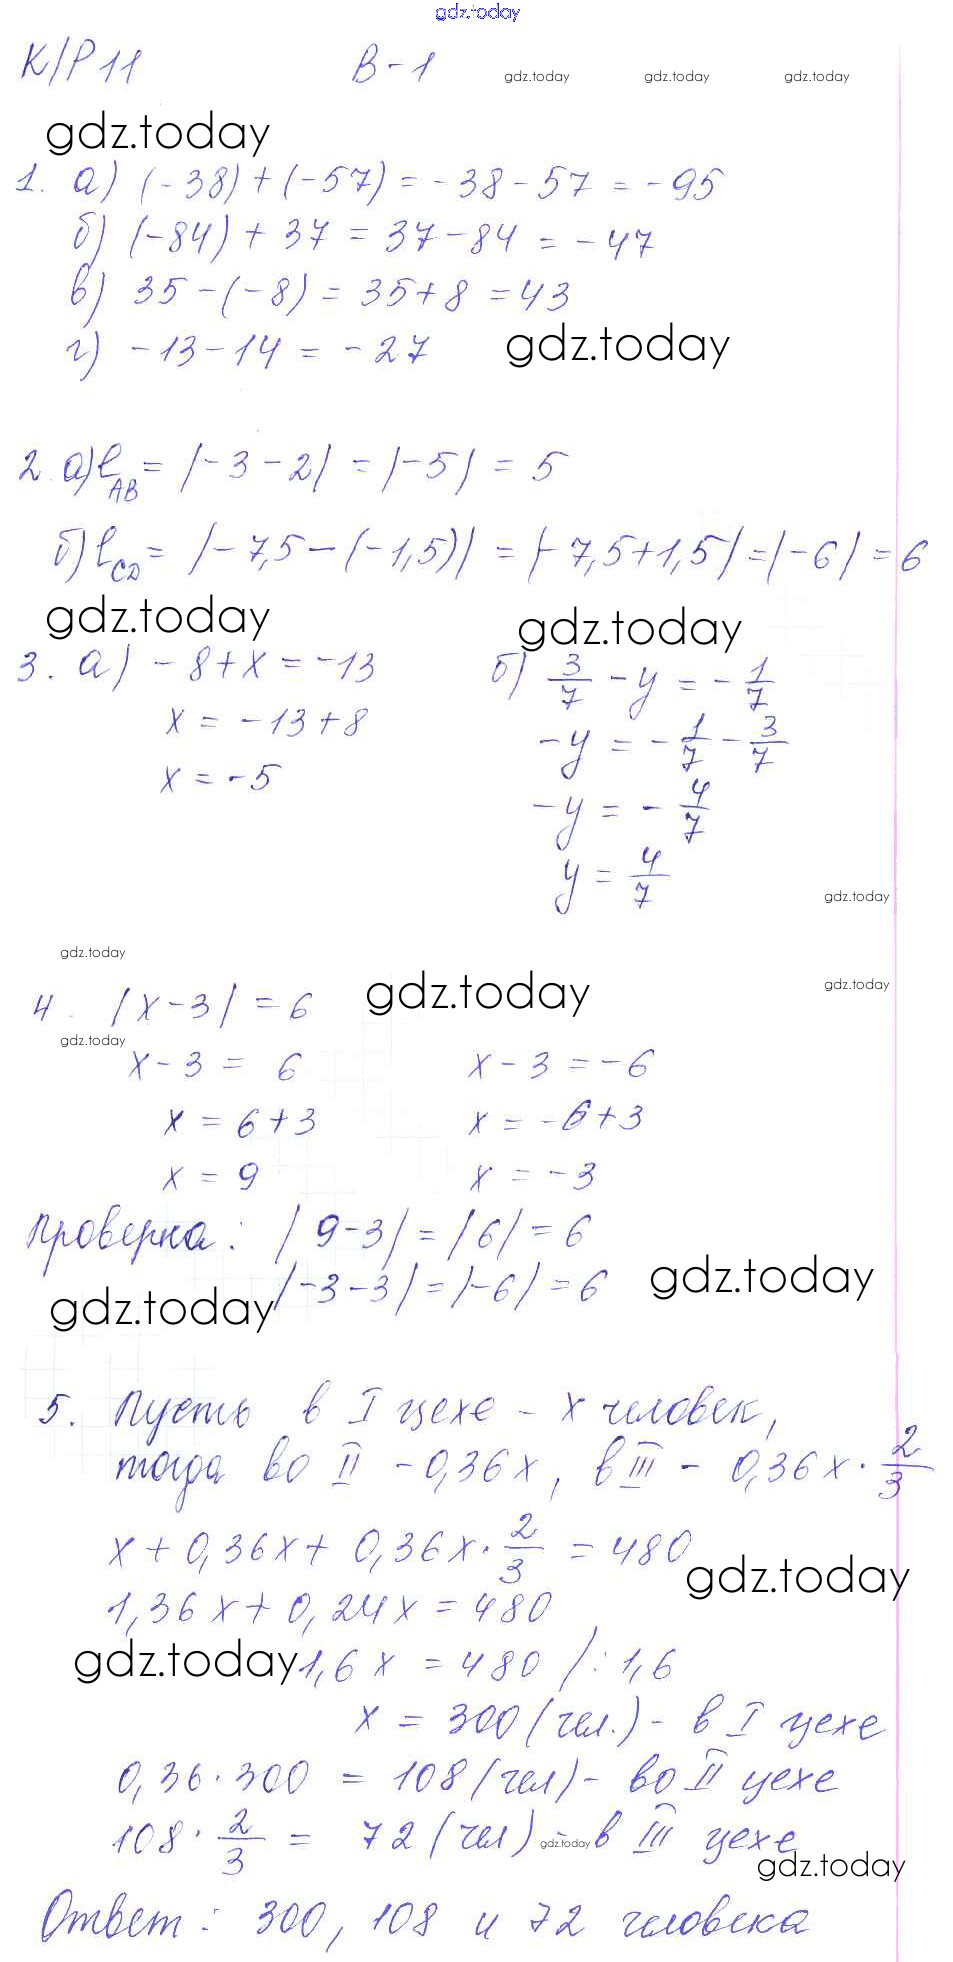 gdz.today
К/Р 11 В-1
gdz.today gdz.today gdz.today
gdz.today
1. а) (-38)+(-57) = -38-57 = -95
б) (-84)+37 = 37-84 = -47
в) 35-(-8) = 35+8 = 43
г) -13-14 = -27
gdz.today
2. а) l_AB = |-3-2| = |-5| = 5
б) l_CD = |-7,5-(-1,5)| = |-7,5+1,5| = |-6| = 6
gdz.today gdz.today
3. а) -8+x = -13 б) 3/7 - y = -1/7
x = -13+8 -y = -1/7 - 3/7
x = -5 -y = -4/7
y = 4/7
gdz.today
gdz.today gdz.today gdz.today
4. |x-3| = 6
gdz.today
x-3 = 6 x-3 = -6
x = 6+3 x = -6+3
x = 9 x = -3
Проверка: |9-3| = |6| = 6
|-3-3| = |-6| = 6
gdz.today gdz.today
5. Пусть в I цехе - x человек,
тогда во II - 0,36x, в III - 0,36x · 2/3
x + 0,36x + 0,36x · 2/3 = 480
gdz.today
1,36x + 0,24x = 480
gdz.today 1,6x = 480 |:1,6
x = 300 (чел.) - в I цехе
0,36 · 300 = 108 (чел) - во II цехе
108 · 2/3 = 72 (чел) - в III цехе
gdz.today
gdz.today
Ответ: 300, 108 и 72 человека